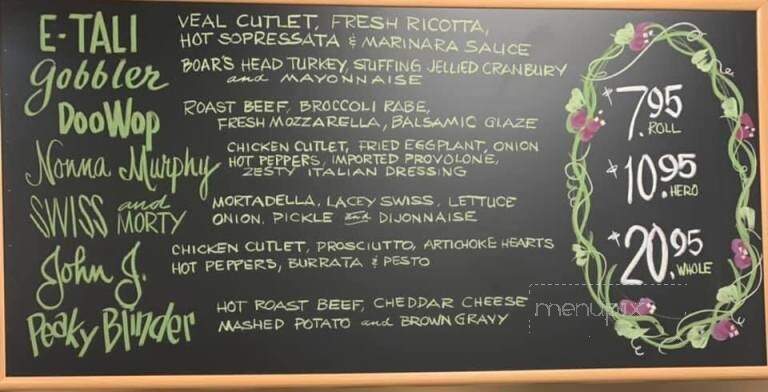 E-TALI
VEAL CUTLET, FRESH RICOTTA,
HOT SOPRESSATA & MARINARA SAUCE
Gobbler
BOAR'S HEAD TURKEY, STUFFING JELLIED CRANBURY
and MAYONNAISE
DooWop
ROAST BEEF, BROCCOLI RABE,
FRESH MOZZARELLA, BALSAMIC GLAZE
Nonna Murphy
CHICKEN CUTLET, FRIED EGGPLANT, ONION
HOT PEPPERS, IMPORTED PROVOLONE,
ZESTY ITALIAN DRESSING
SWISS and MORTY
MORTADELLA, LACEY SWISS, LETTUCE
ONION, PICKLE and DIJONNAISE
John J.
CHICKEN CUTLET, PROSCIUTTO, ARTICHOKE HEARTS
HOT PEPPERS, BURRATA & PESTO
Peaky Blinder
HOT ROAST BEEF, CHEDDAR CHEESE
MASHED POTATO and BROWN GRAVY
$7.95
ROLL
$10.95
HERO
$20.95
WHOLE
menupix